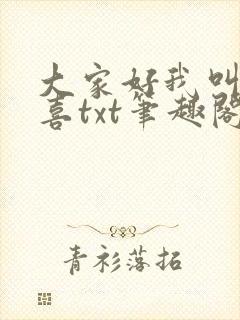 大家好我叫
喜txt笔趣阁
青衫落拓